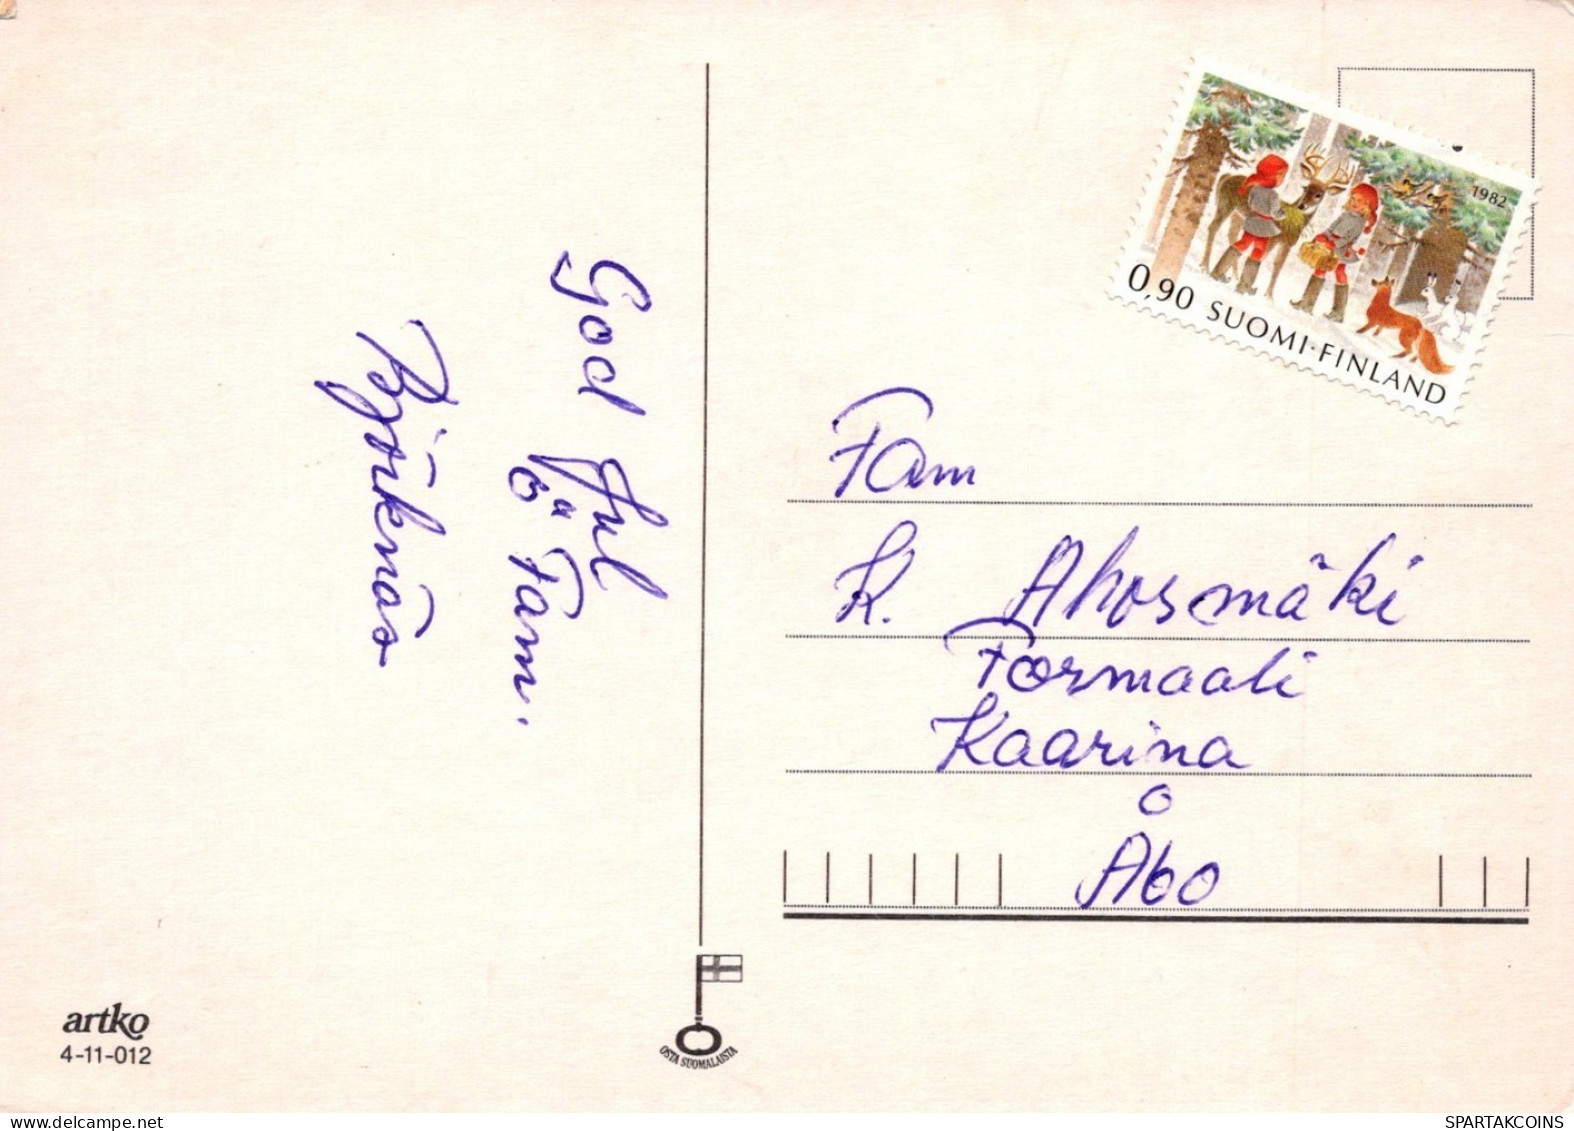 God Jul
önskar Fam.
Björknäs
1982
0,90 SUOMI·FINLAND
Fam
K. Ahosmäki
Formaali
Kaarina
Åbo
artko
4-11-012
OSTA SUOMALAISTA
SPARTAKCOINS